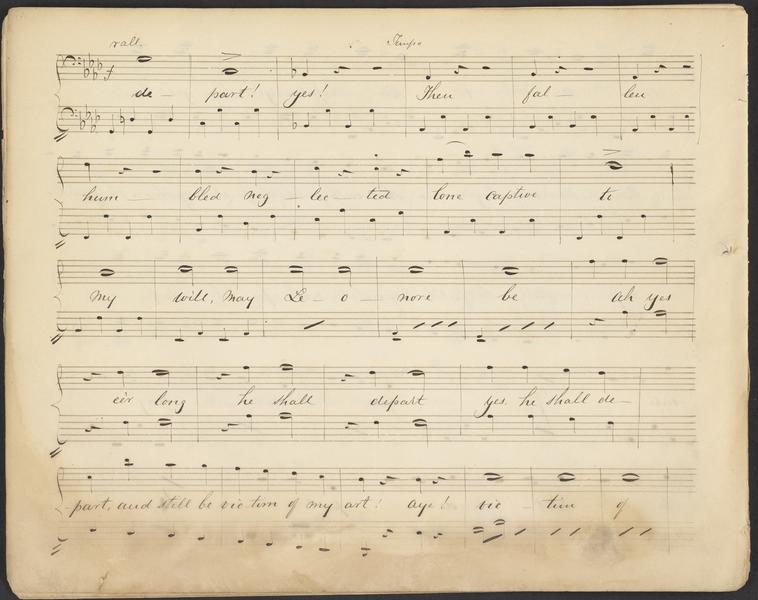 rall. Tempo
de – part! yes! Then fal – len
hum – bled neg – lec – ted lone captive to
my will, may Le – o – nore be ah yes
eer long he shall depart yes he shall de –
part, and still be victim of my art! aye! vic – tim of